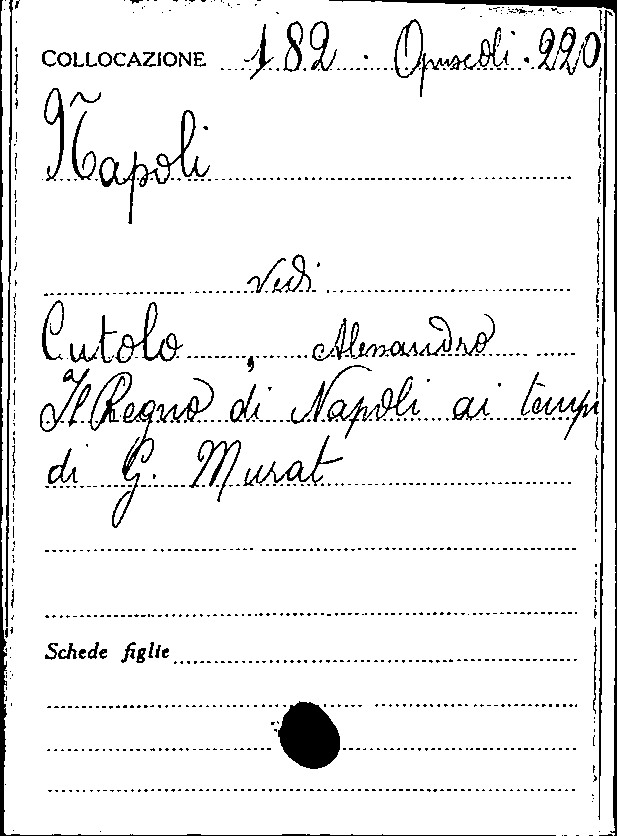 COLLOCAZIONE 182 . Opuscoli . 220
Napoli
Vedi
Cutolo, Alessandro
Il Regno di Napoli ai tempi
di G. Murat
Schede figlie